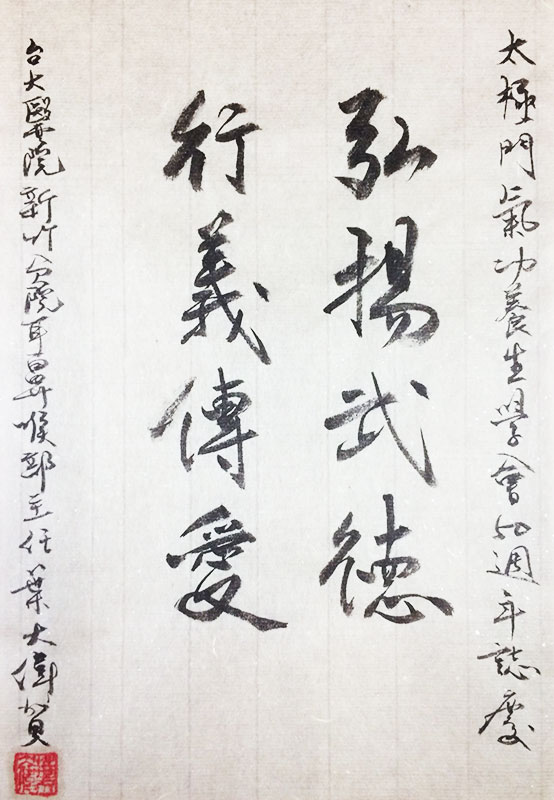 太極門氣功養生學會50週年誌慶
弘揚武德
行義傳愛
台大醫院新竹分院耳鼻喉部主任葉大偉賀